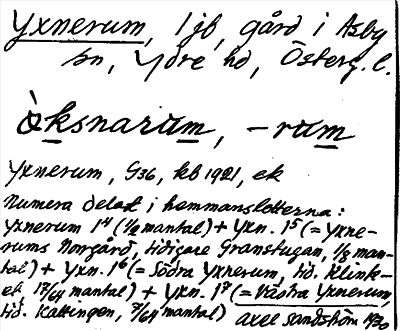 Yxnerum, 1 jb, gård i Asby
sn, Ydre hd, Österg. l.
òksnarum, -rum
Yxnerum, G36, kb 1921, ek
Numera delat i hemmanslotterna:
Yxnerum 1⁴ (1/8 mantal) + Yxn. 1⁵ (= Yxne-
rums Norrgård, tidigare Granstugan, 1/8 man-
tal) + Yxn. 1⁶ (= Södra Yxnerum, tid. Klink-
et 17/64 mantal) + Yxn. 1⁷ (= Västra Yxnerum,
tid. Kattingen, 7/64 mantal) Axel Sandström 1930